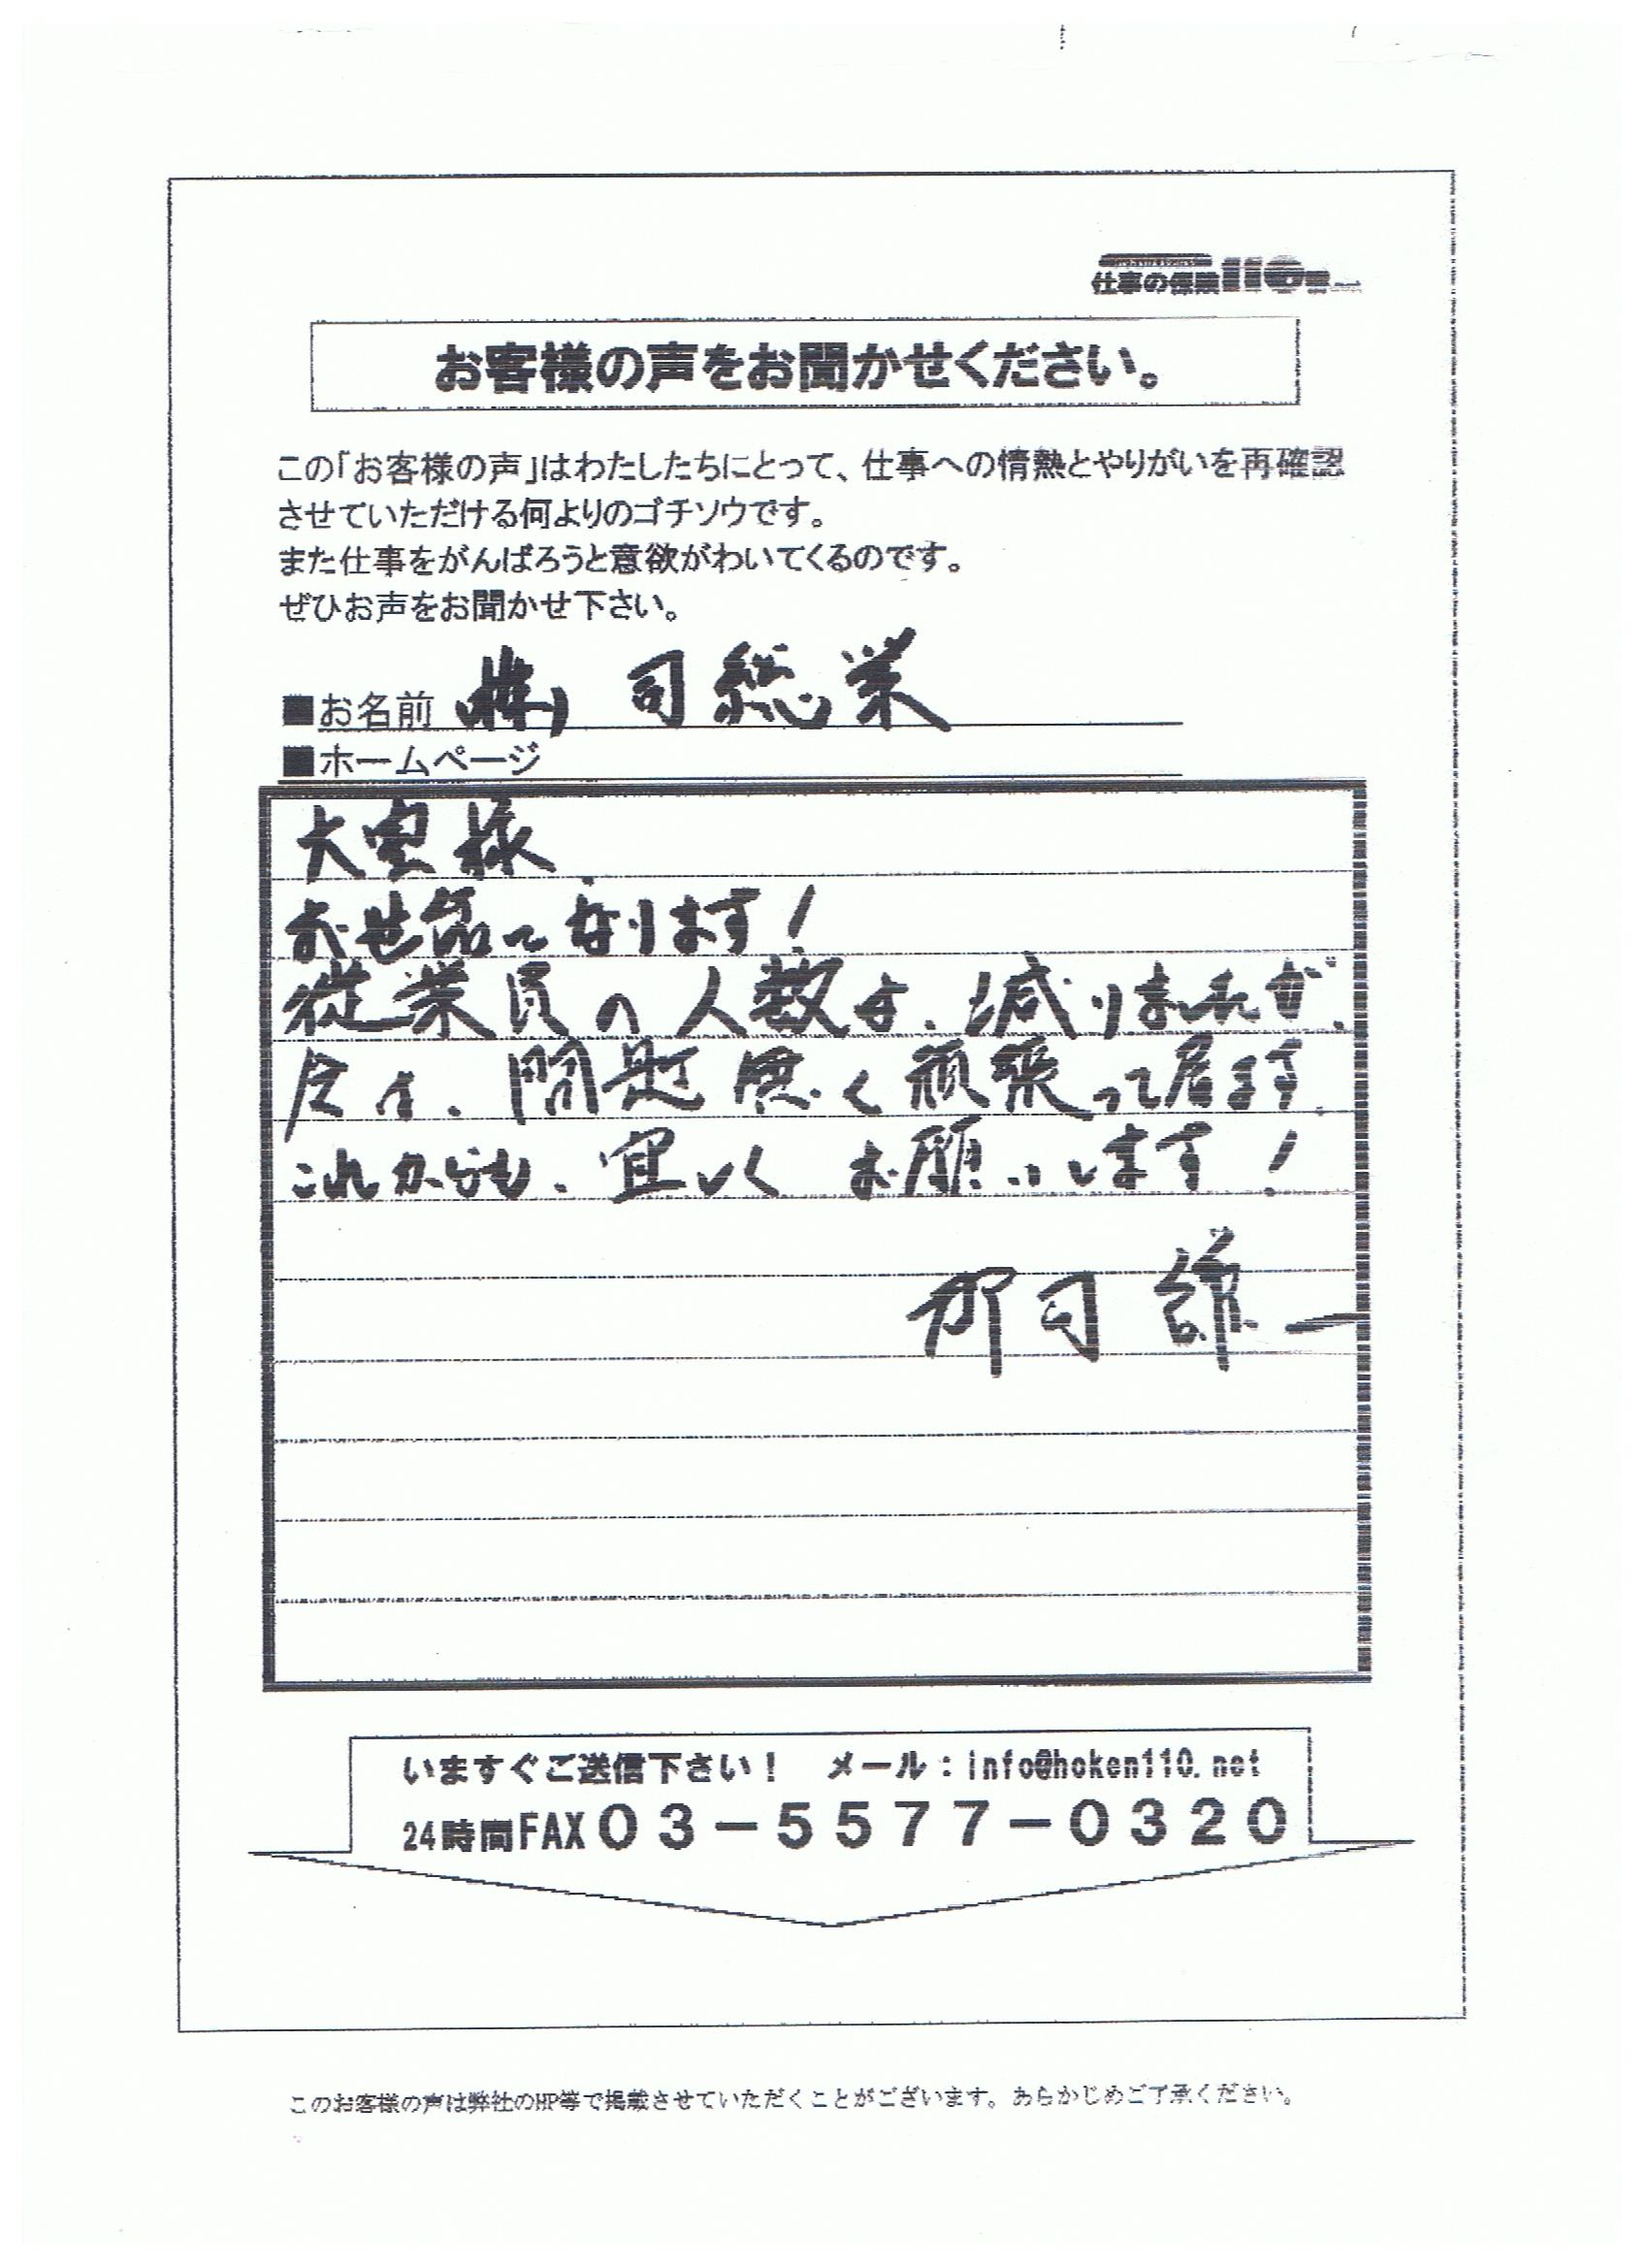 仕事の保険110番
お客様の声をお聞かせください。
この「お客様の声」はわたしたちにとって、仕事への情熱とやりがいを再確認
させていただける何よりのゴチソウです。
また仕事をがんばろうと意欲がわいてくるのです。
ぜひお声をお聞かせ下さい。
■お名前 (株)司総業
■ホームページ
様
お世話になります!
従業員の人数は、減りましたが、
今は、問題無く頑張って居ます。
これからも、宜しくお願いします!
司
いますぐご送信下さい! メール:info@hoken110.net
24時間FAX03-5577-0320
このお客様の声は弊社のHP等で掲載させていただくことがございます。あらかじめご了承ください。